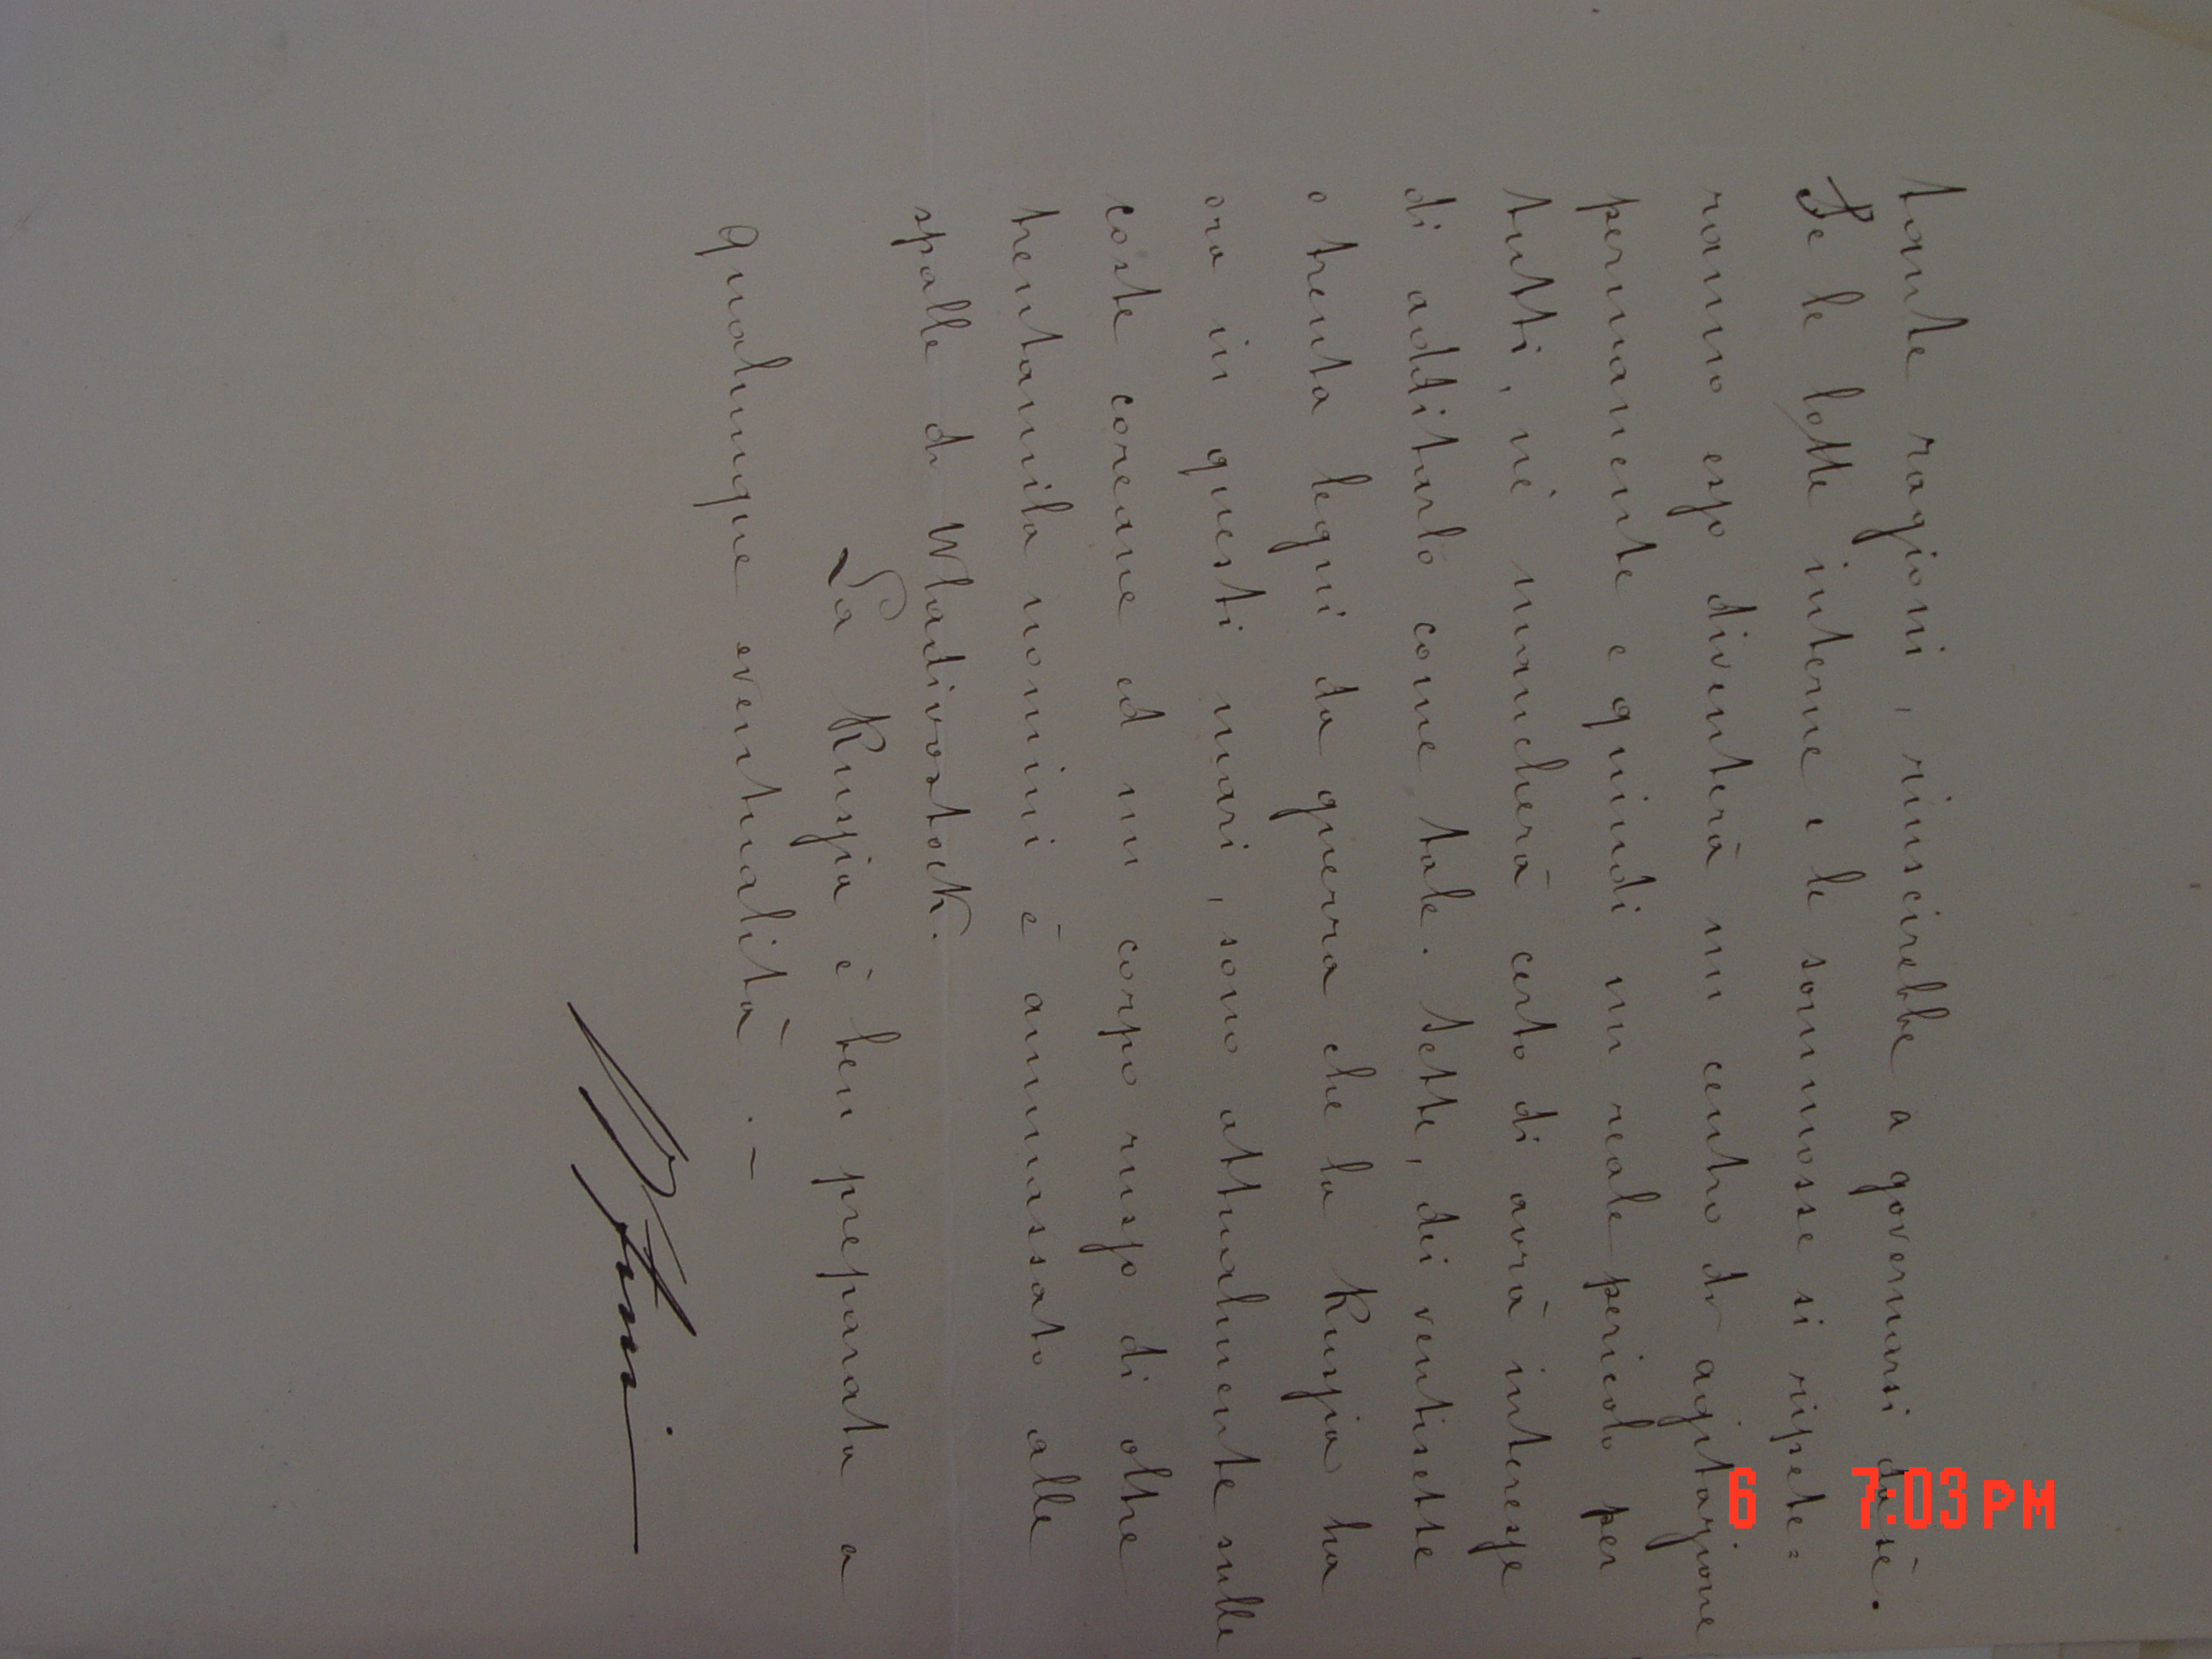 tante ragioni, riuscirebbe a governarsi da sè.
Se le lotte interne e le sommosse si ripete=
ranno esso diventerà un centro di agitazione
permanente e quindi un reale pericolo per
tutti, nè mancherà certo di avrà interesse
di additarlo come tale. Sette, dei ventisette
o trenta legni da guerra che la Russia ha
ora in questi mari, sono attualmente sulle
coste coreane ed un corpo russo di oltre
trentamila uomini è ammassato alle
spalle di Wladivostock.
La Russia è ben preparata a
qualunque eventualità. -
6 7:03 PM